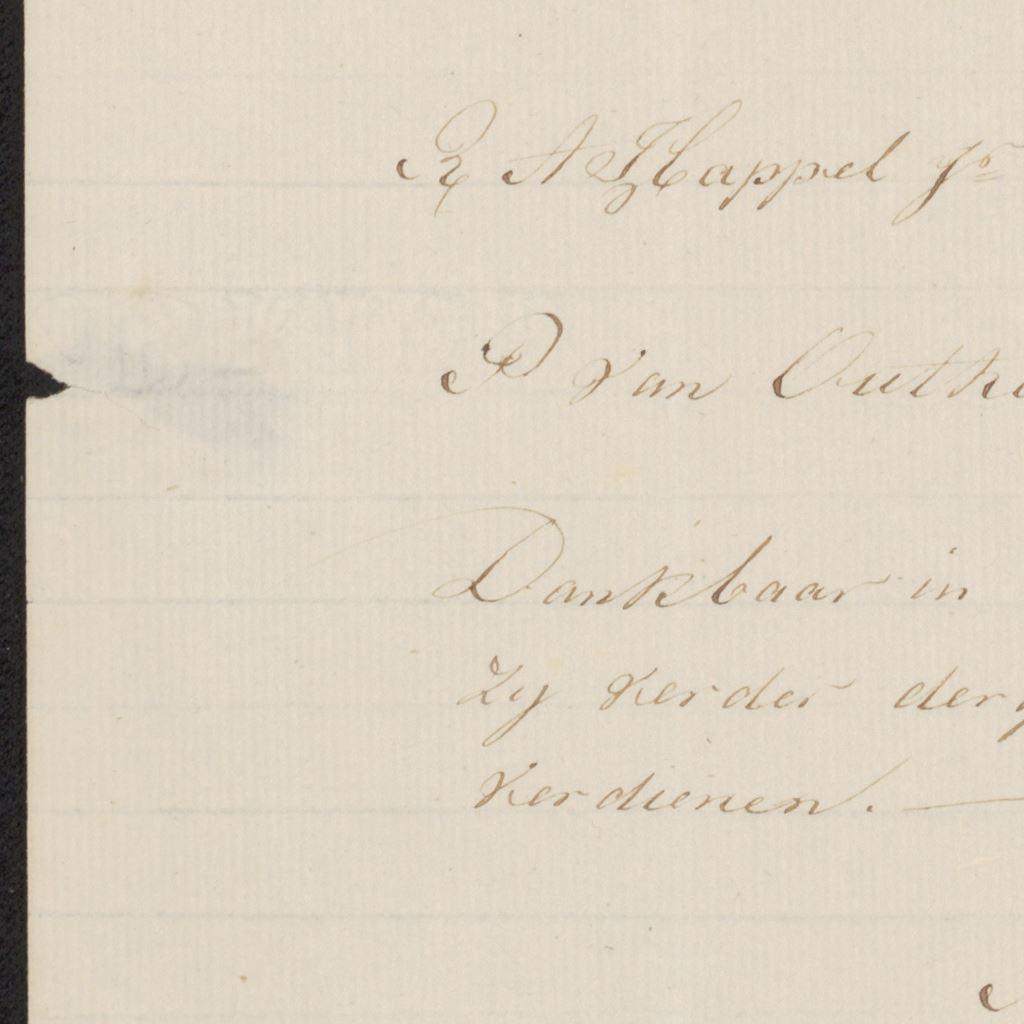 R A Happel Jr
P van Outh
Dankbaar in
Zy verder der
verdienen. —